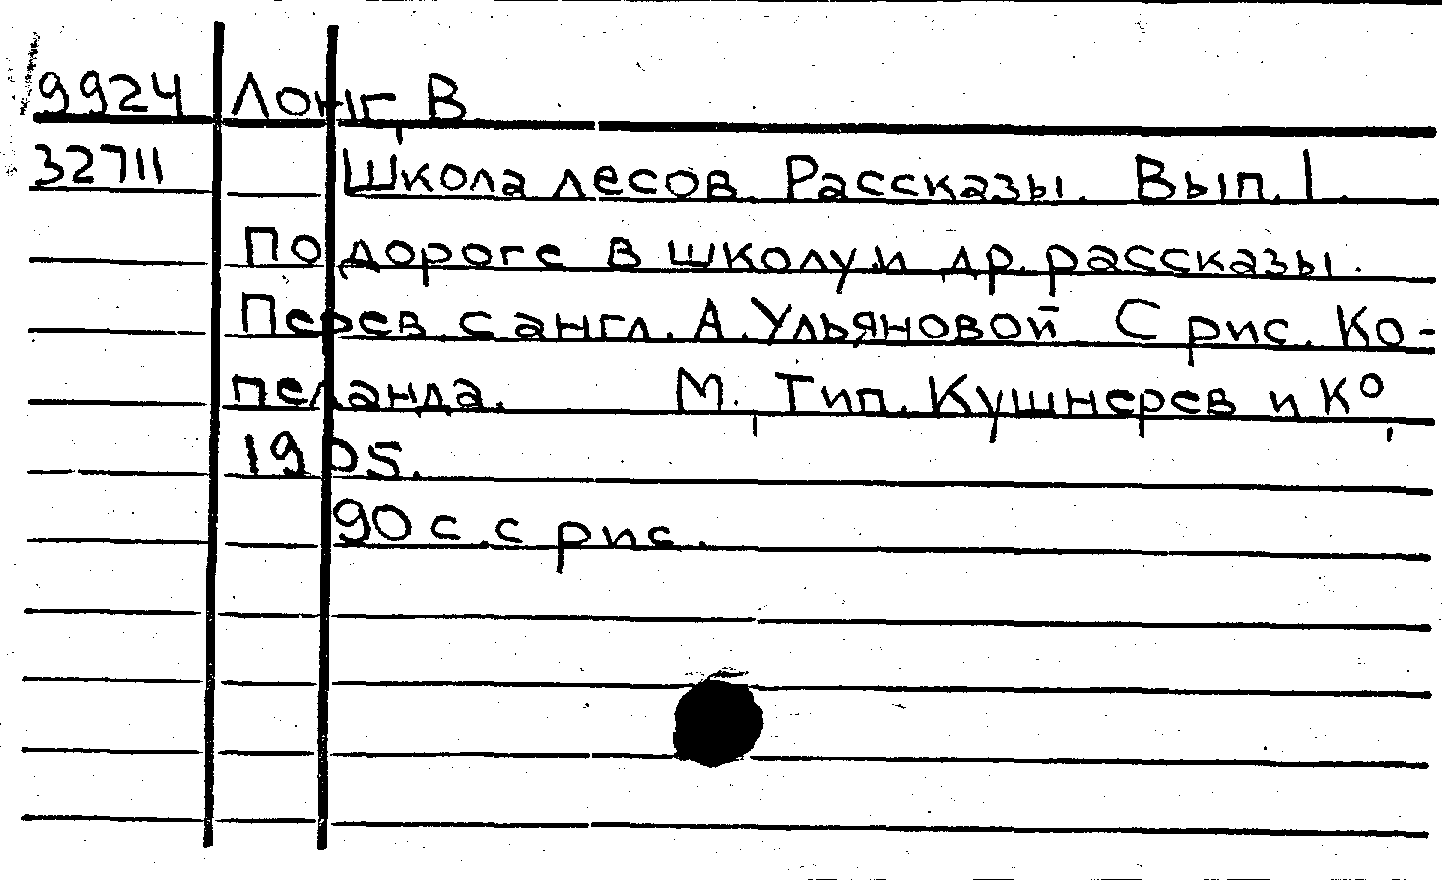 9924 Лонг, В
32711 Школа лесов. Рассказы. Вып. 1.
По дороге в школу и др. рассказы.
Перев. с англ. А. Ульяновой С рис. Ко-
пеланда. М., Тип. Кушнерев и К⁰,
1905.
90 с. с рис.